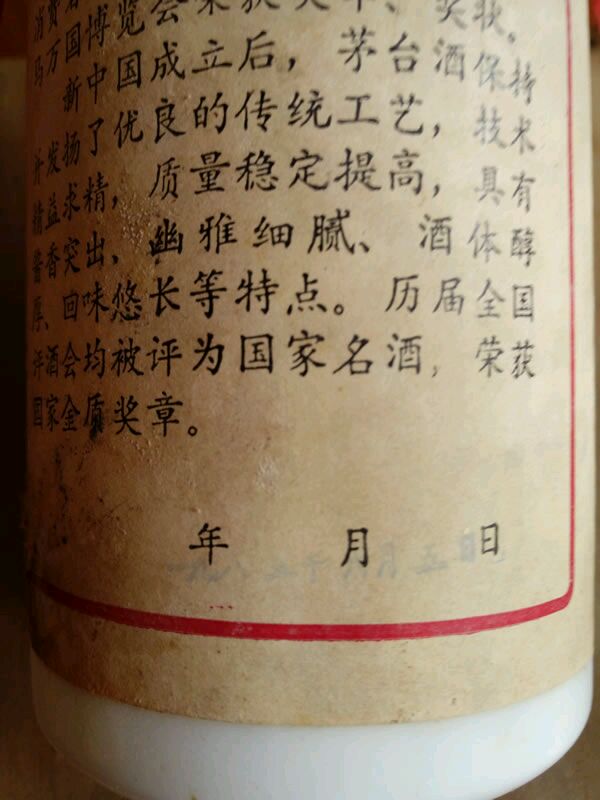 消费
马万国博览会荣获奖章、奖状。
新中国成立后，茅台酒保持
并发扬了优良的传统工艺，技术
精益求精，质量稳定提高，具有
酱香突出，幽雅细腻、酒体醇
厚、回味悠长等特点。历届全国
评酒会均被评为国家名酒，荣获
国家金质奖章。
年 月 日